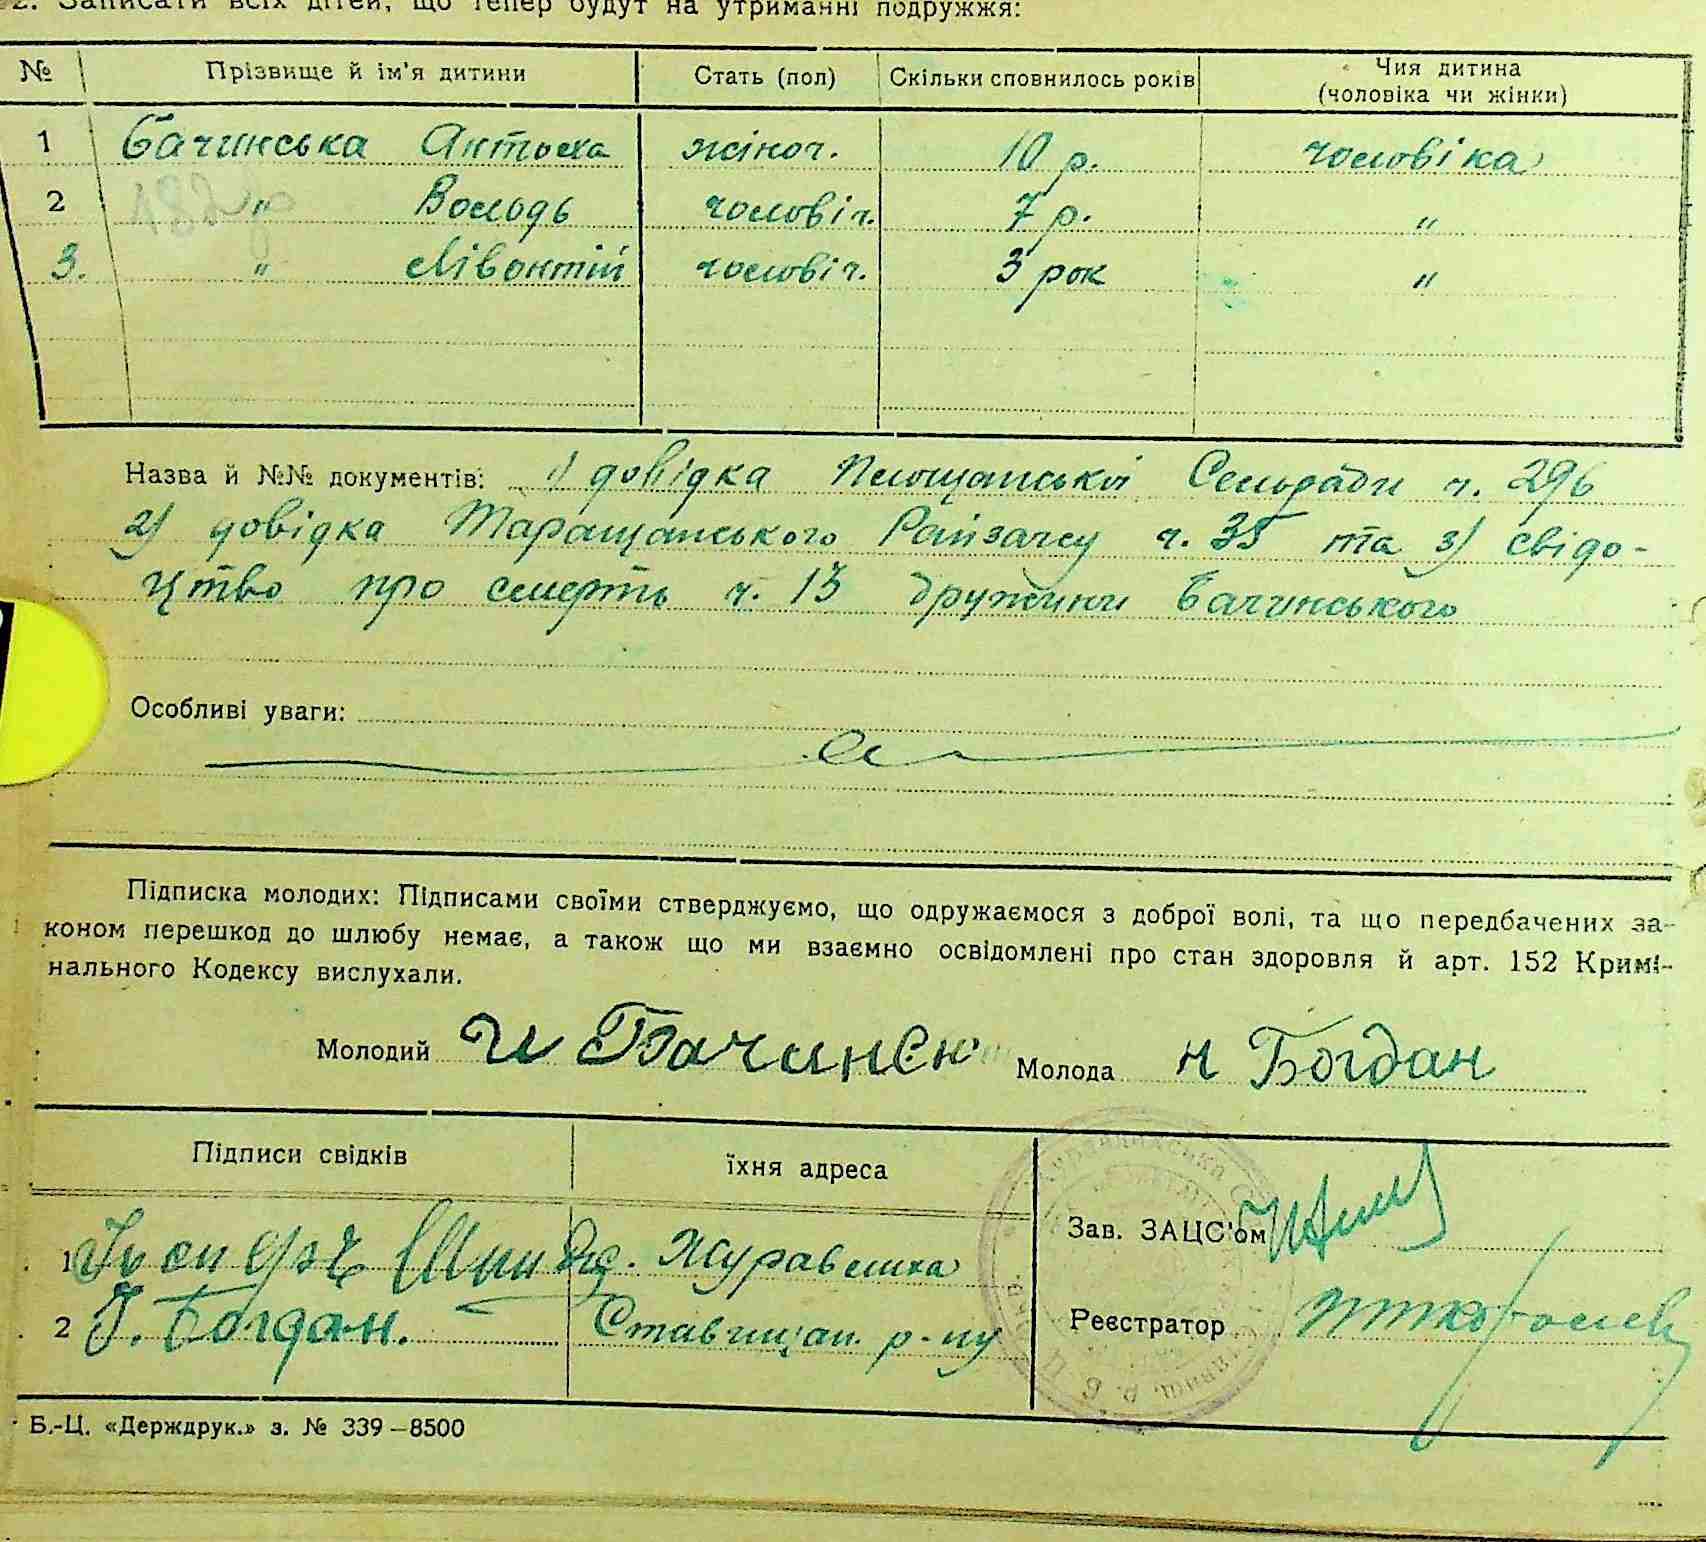 2. Записати всіх дітей, що тепер будут на утриманні подружжя:
№ Прізвище й ім'я дитини Стать (пол) Скільки сповнилось років Чия дитина (чоловіка чи жінки)
1 Бачинська Антося жіноч. 10 р. чоловіка
2 " Володь чоловіч. 7 р. "
3. " Лівонтій чоловіч. 3 рок "
Назва й №№ документів: 1) довідка Площанської Сельради ч. 296
2) довідка Таращанського Райзагсу ч. 35 та 3) свідо-
цтво про смерть ч. 13 дружини Бачинського
Особливі уваги:
Підписка молодих: Підписами своїми стверджуємо, що одружаємося з доброї волі, та що передбачених за-
коном перешкод до шлюбу немає, а також що ми взаємно освідомлені про стан здоровля й арт. 152 Кримі-
нального Кодексу вислухали.
Молодий И Бачинск Молода Н Богдан
Підписи свідків їхня адреса
Зав. ЗАЦС'ом
1 с. Журавлиха
Реєстратор
2 Й. Богдан. Ставищан. р-ну
Б.-Ц. «Держдрук.» з. № 339–8500